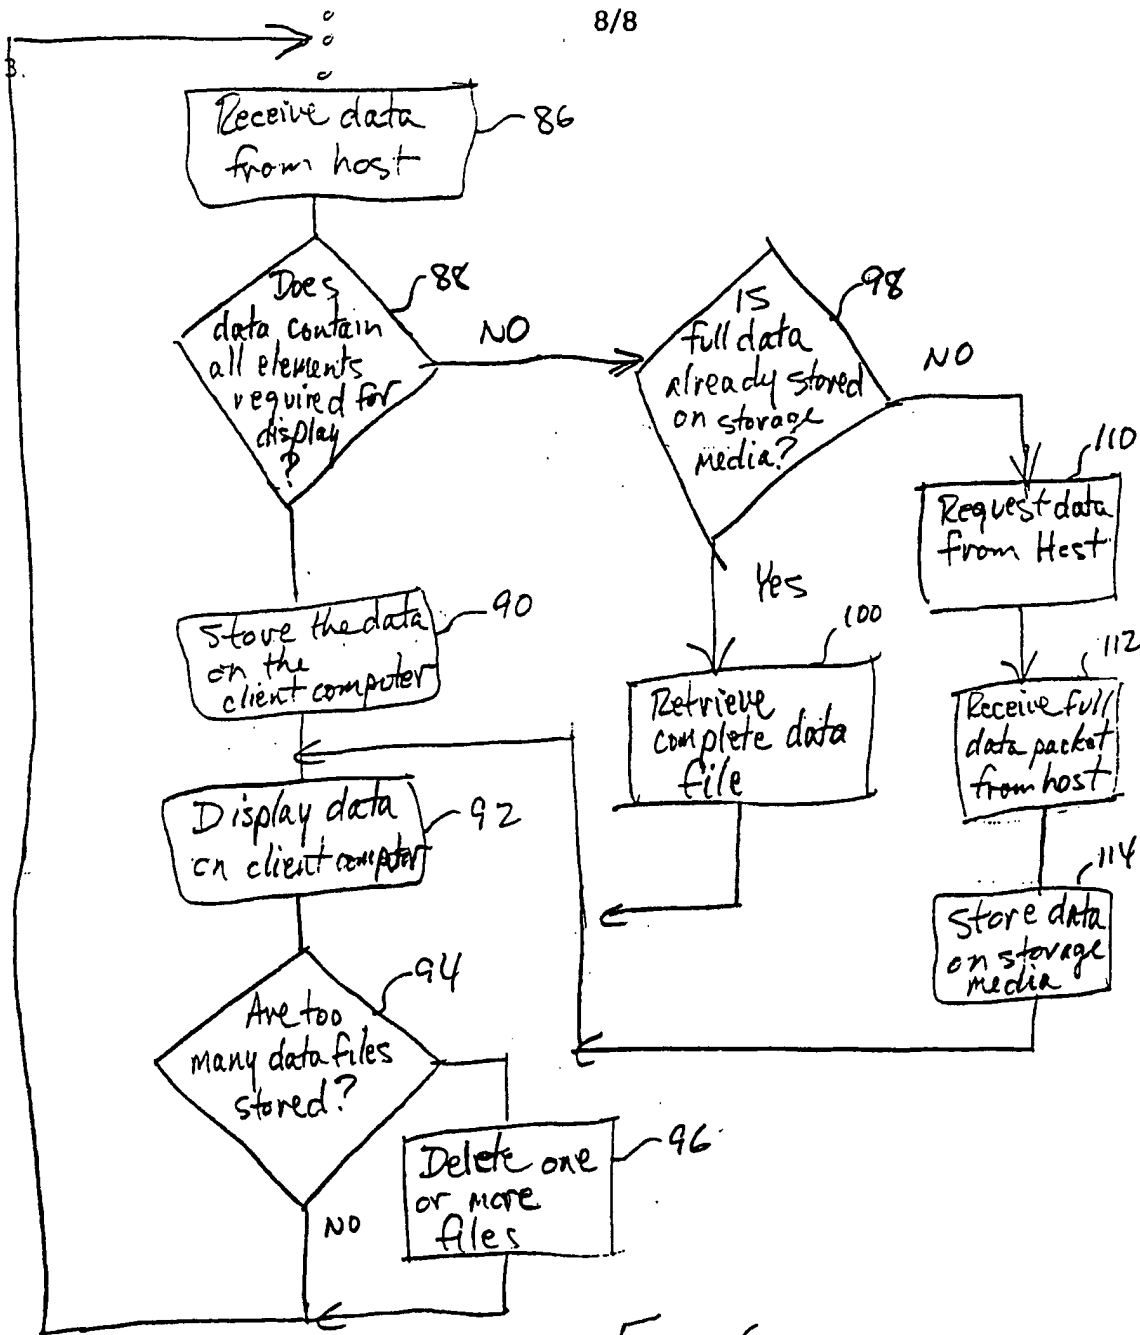 8/8
3.
Receive data
from host
86
Does
data contain
all elements
required for
display
?
88
NO
IS
full data
already stored
on storage
media?
98
NO
110
Request data
from Host
Yes
100
Retrieve
complete data
file
112
Receive full
data packet
from host
114
Store data
on storage
media
Store the data
on the
client computer
90
Display data
on client computer
92
Are too
many data files
stored?
94
NO
Delete one
or more
files
96